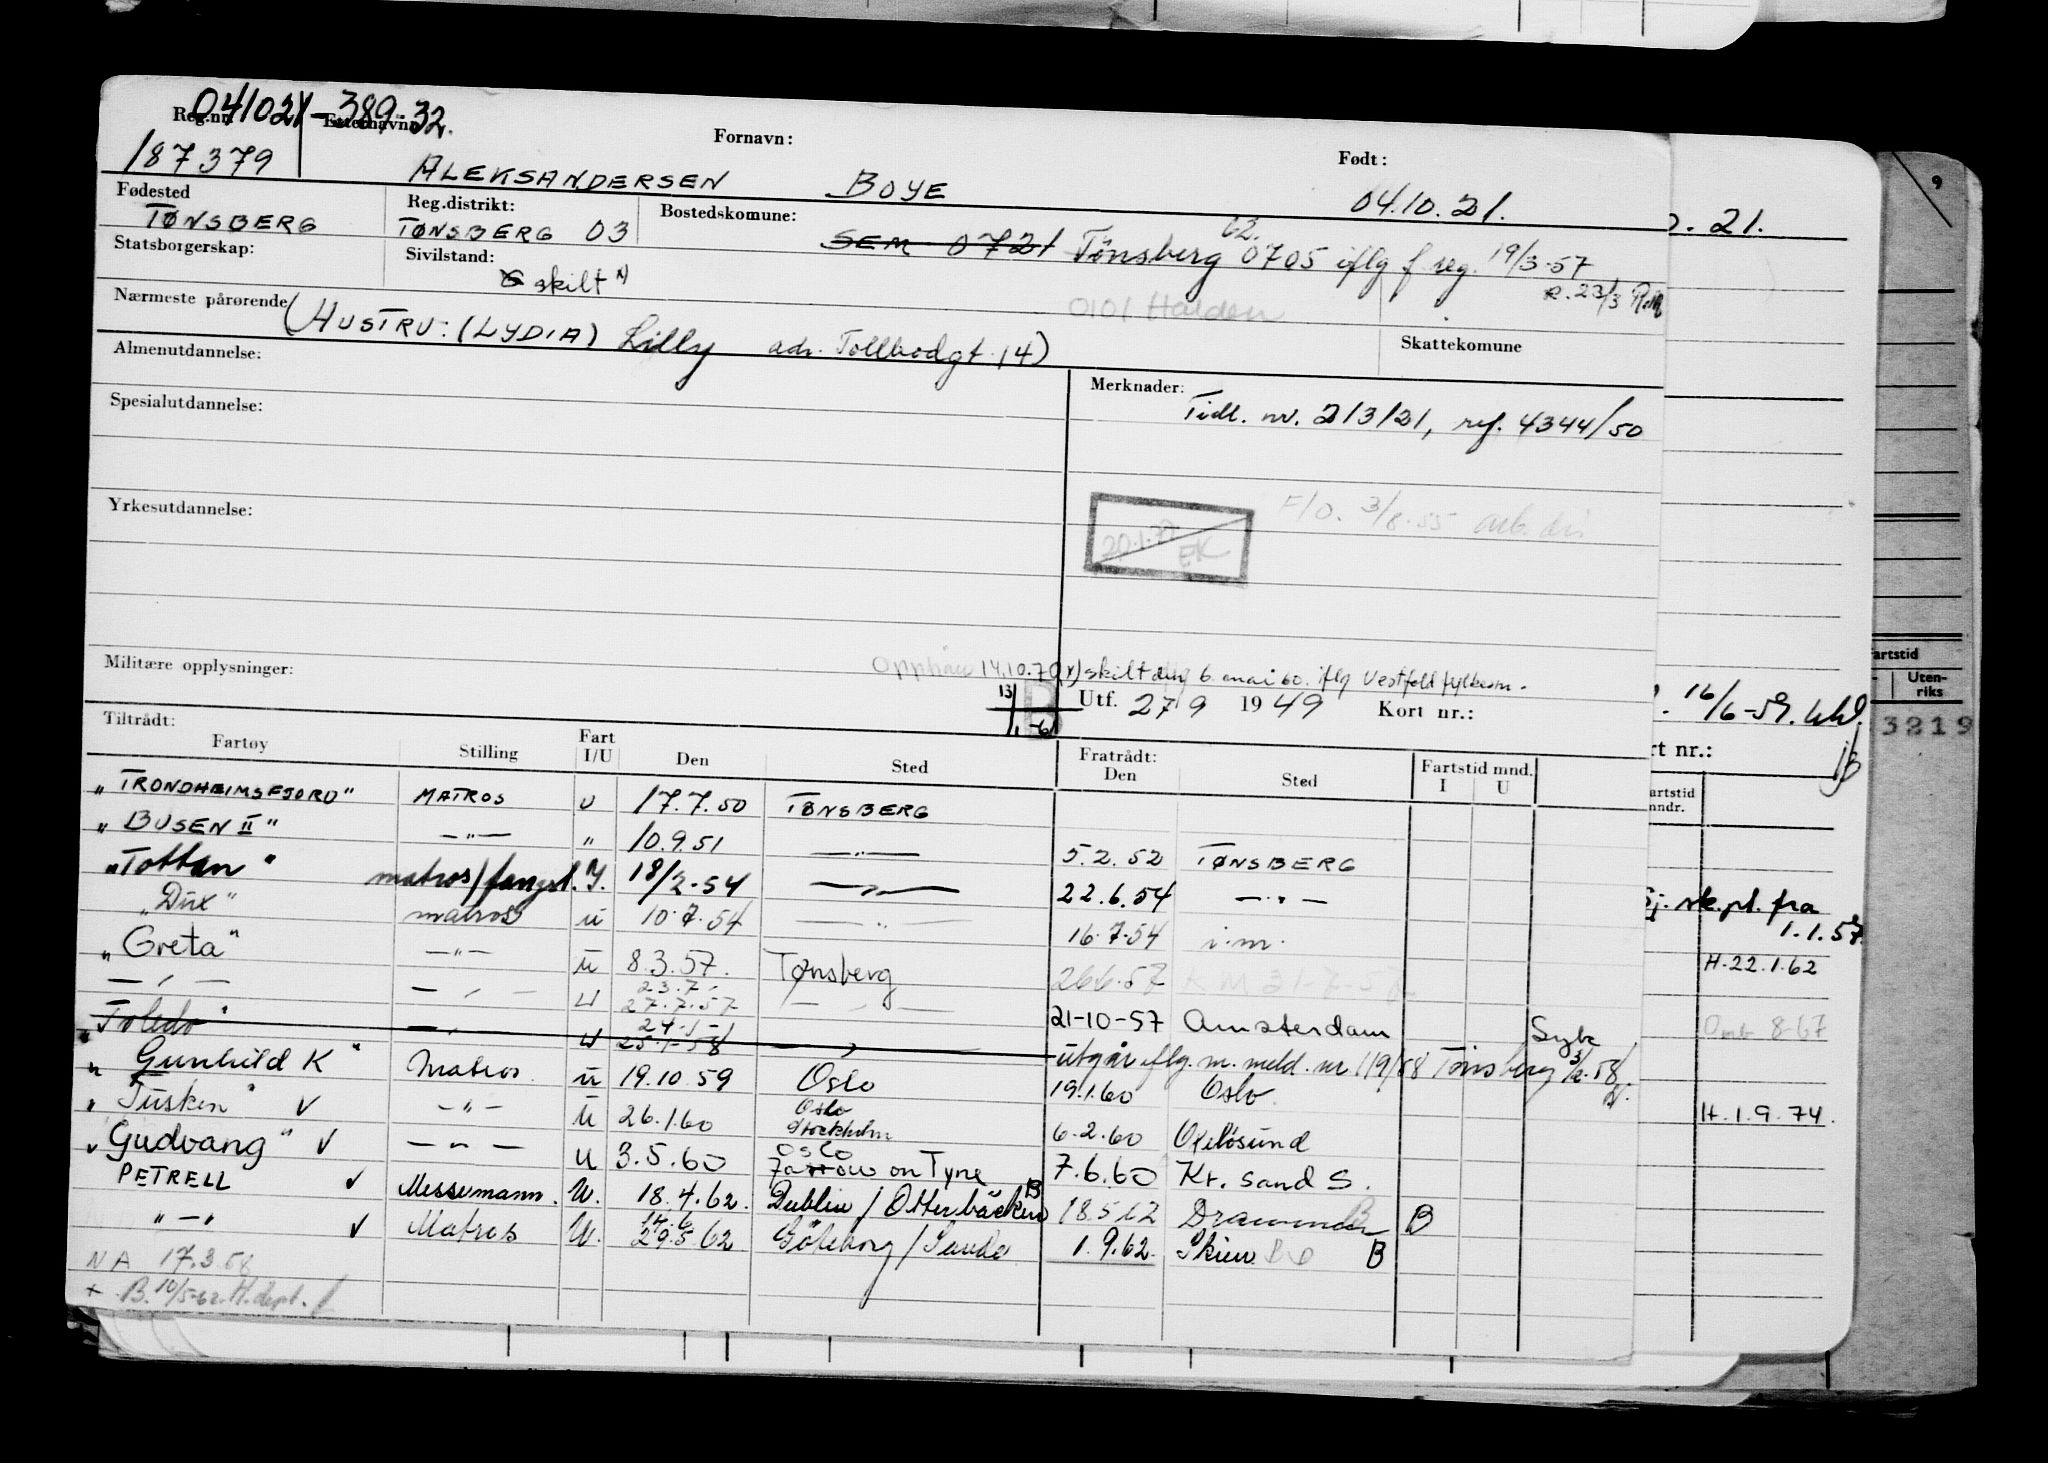 041021-389-32.
Reg.nr. Etternavn: Fornavn: Født:
187379 ALEKSANDERSEN BOYE 04.10.21.
Fødested Reg.distrikt: Bostedskomune:
TØNSBERG TØNSBERG 03 SEM 0721 Tönsberg 0705 iflg f reg. 19/3-57
62.
Statsborgerskap: Sivilstand:
G skilt x)
R. 23/3
0101 Halden
Nærmeste pårørende (HUSTRU: (LYDIA) Lilly adr. Tollbodgt. 14)
Skattekomune
Almenutdannelse:
Merknader:
Tidl. nr. 213121, ref. 4344/50
Spesialutdannelse:
F/O. 3/8-55 arb. dir.
20.1.77 EK
Yrkesutdannelse:
Militære opplysninger:
Opphav 14.10.70 x) skilt den 6. mai 60. iflg Vestfold fylkesm.
13/1-61
Utf. 27/9 1949 Kort nr.:
Tiltrådt: Fratrådt:
Fartøy Stilling Fart I/U Den Sted Den Sted Fartstid mnd. I U
"TRONDHEIMSFJORD" MATROS U 17.7.50 TØNSBERG
"BUSEN II" —"— " 10.9.51 —"— 5.2.52 TØNSBERG
"Tottan" matros/fangst. U. 18/2-54 —"— 22.6.54 —"—
"Dux" matros u 10.7.54 —"— 16.7.54 i.m.
"Greta" —"— u 8.3.57. Tønsberg 26.6.57 KM 31-7-57
—"— —"— u 23.7. 27.7.57 —"— 21-10-57 Amsterdam Syk
"Toledo" —"— u 24.1-51 25.1-58 —"— utgår iflg. m. meld. nr 119/58 Tønsberg 3/2.58
"Gunhild K" Matros u 19.10.59 Oslo 19.1.60 Oslo.
"Tusken" ✓ —"— u 26.1.60 Oslo Stockholm 6.2.60 Oxelösund
"Gudvang" ✓ —"— u 3.5.60 Oslo Jarrow on Tyne 7.6.60 Kr. sand S.
PETRELL ✓ Messemann. U. 18.4.62. Dublin / Otterbäcken B 18.5.62 Drammen B B
"—" ✓ Matros U. 14.6 29.5.62 Göteborg / Sauda 1.9.62. Skien B
NA 17.3.58
+ B. 10/5-62 H.dept.
0. 21.
9
Fartstid
Utenriks
16/6-59.
3219
Kort nr.:
Fartstid mndr.
Sj. sk.pl. fra 1.1.57.
H.22.1.62
Omb 8-67
H.1.9.74.